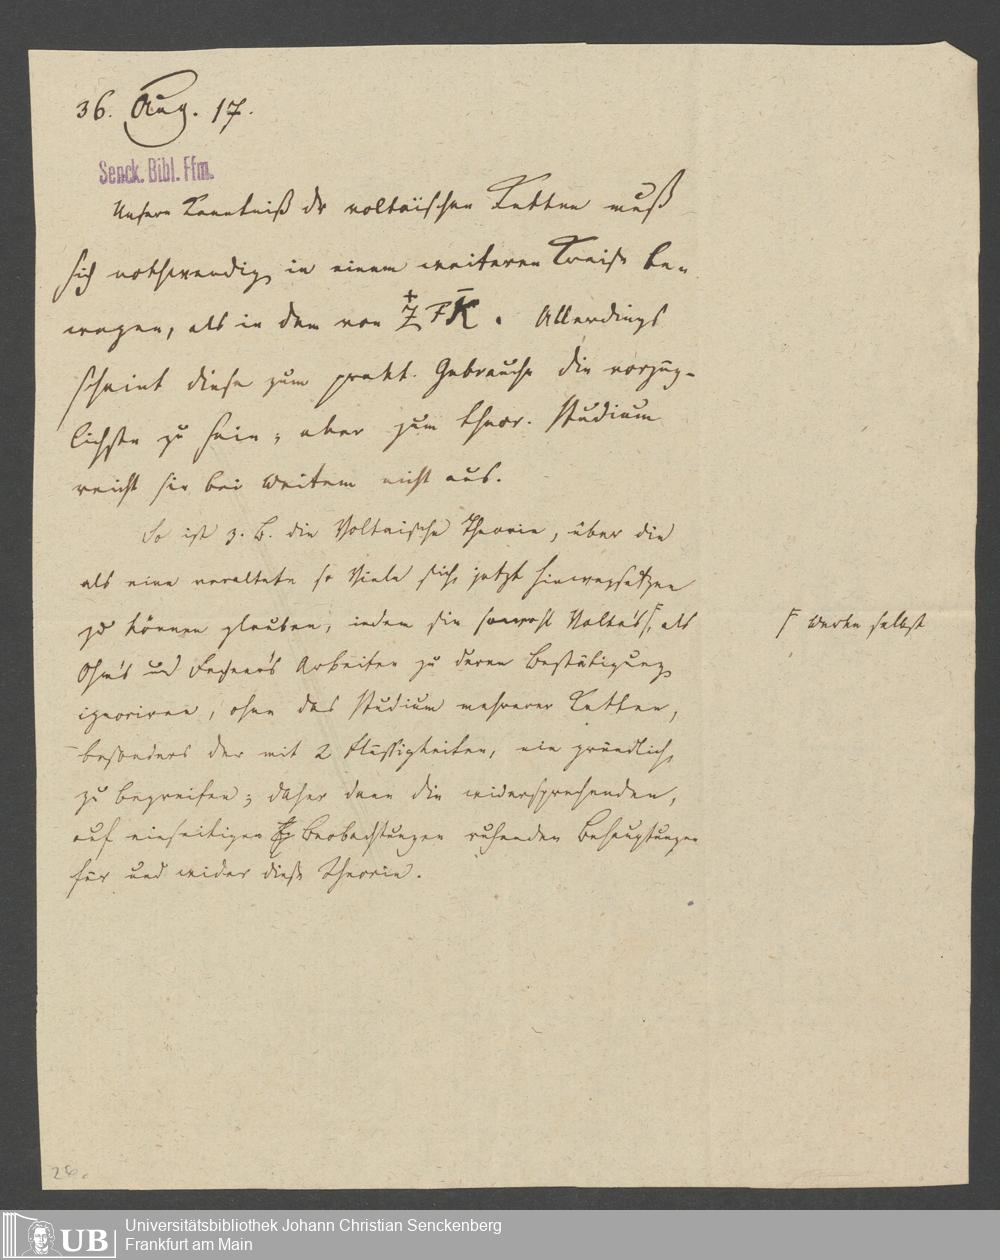 36. Aug. 17.
Senck. Bibl. Ffm.
Unsere Kenntniß der voltaïschen Ketten muß
sich nothwendig in einem weiteren Kreise be-
wegen, als in dem von Z F K. Allerdings
scheint diese zum prakt. Gebrauche die vorzüg-
lichste zu sein, aber zum theor. Studium
reicht sie bei Weitem nicht aus.
So ist z. B. die Voltaische Theorie, über die
als eine veraltete so Viele sich jetzt hinwegsetzen
zu können glauben, indem sie sowohl Volta's Γ, als
Ohm's und Fechner's Arbeiten zu deren Bestätigung
Γ Werke selbst
ignoriren, ohne das Studium mehrerer Ketten,
besonders der mit 2 Flüssigkeiten, nie gründlich
zu begreifen; daher denn die widersprechenden,
auf einseitigen Beobachtungen ruhenden Behauptungen
für und wider diese Theorie.
28.
UB
Universitätsbibliothek Johann Christian Senckenberg
Frankfurt am Main